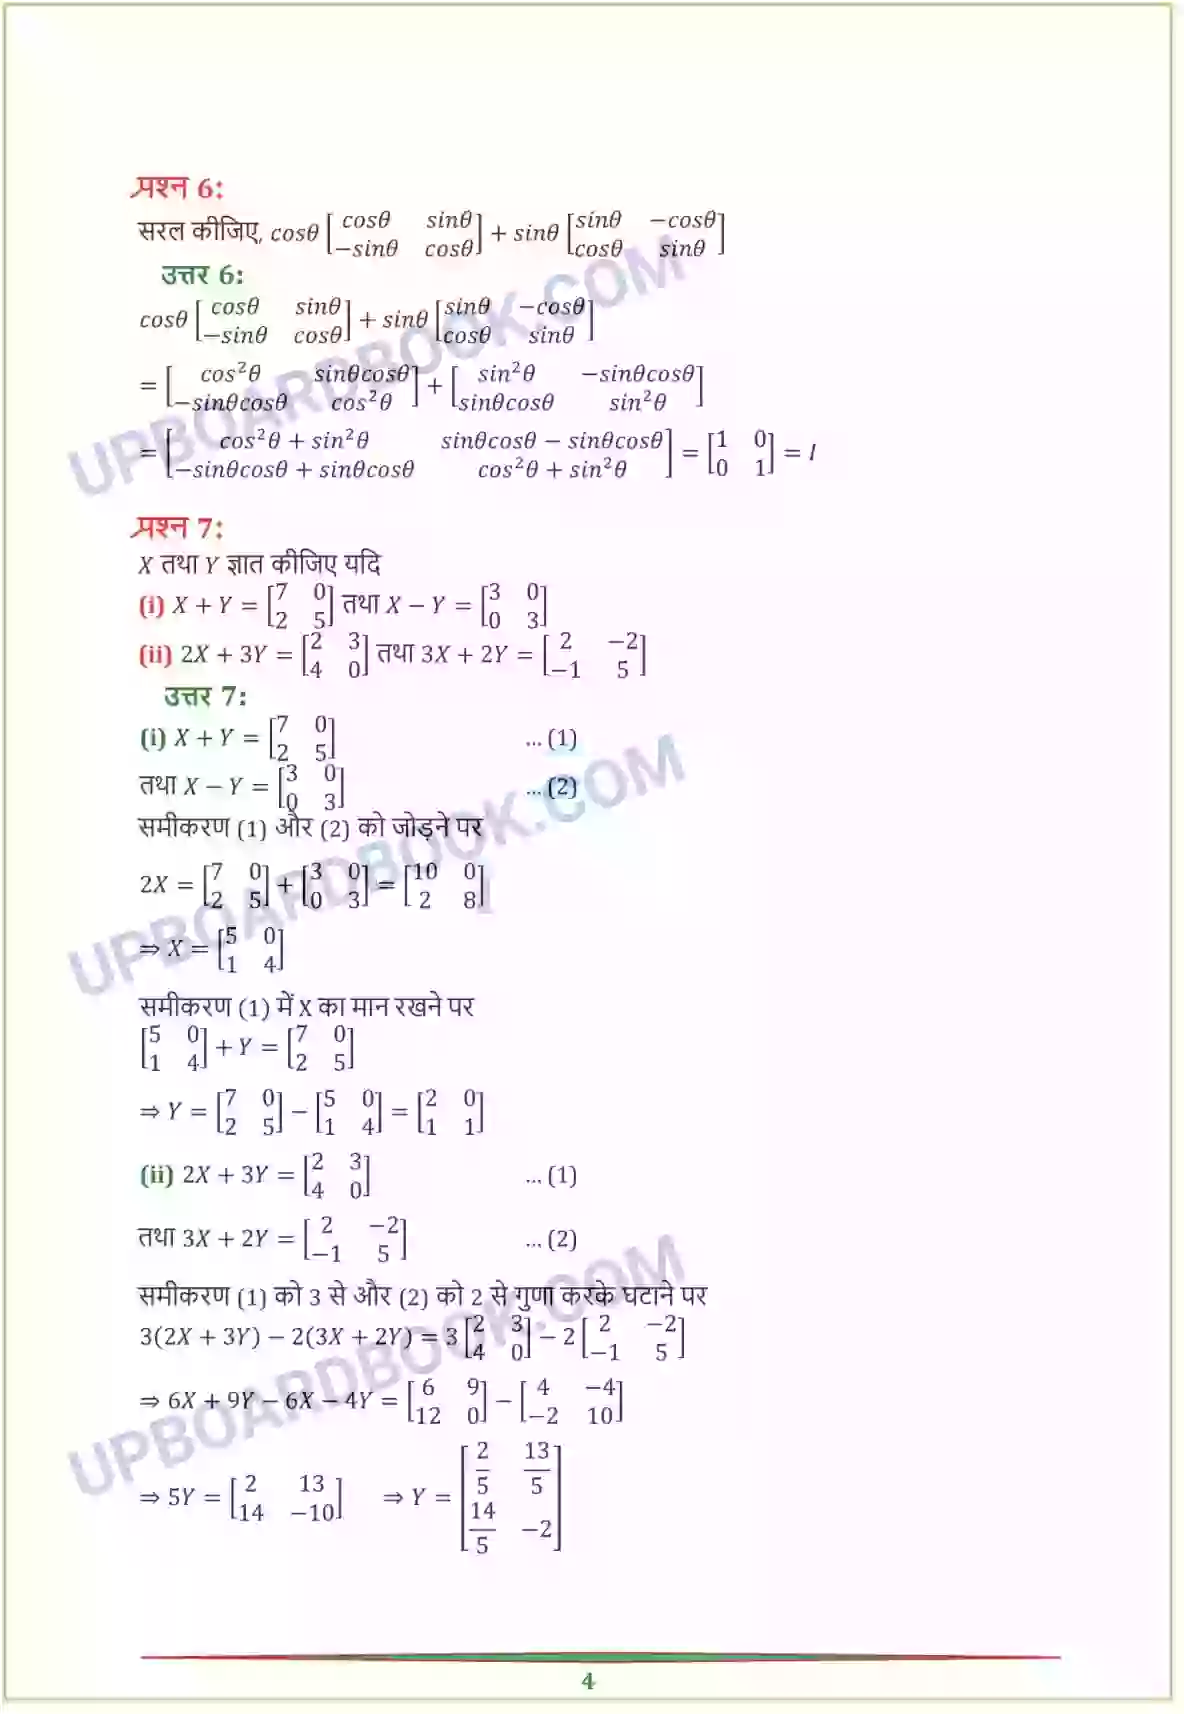 प्रश्न 6:
सरल कीजिए, cosθ [cosθ sinθ; −sinθ cosθ] + sinθ [sinθ −cosθ; cosθ sinθ]
उत्तर 6:
cosθ [cosθ sinθ; −sinθ cosθ] + sinθ [sinθ −cosθ; cosθ sinθ]
= [cos²θ sinθcosθ; −sinθcosθ cos²θ] + [sin²θ −sinθcosθ; sinθcosθ sin²θ]
= [cos²θ + sin²θ sinθcosθ − sinθcosθ; −sinθcosθ + sinθcosθ cos²θ + sin²θ] = [1 0; 0 1] = I
प्रश्न 7:
X तथा Y ज्ञात कीजिए यदि
(i) X + Y = [7 0; 2 5] तथा X − Y = [3 0; 0 3]
(ii) 2X + 3Y = [2 3; 4 0] तथा 3X + 2Y = [2 −2; −1 5]
उत्तर 7:
(i) X + Y = [7 0; 2 5] ... (1)
तथा X − Y = [3 0; 0 3] ... (2)
समीकरण (1) और (2) को जोड़ने पर
2X = [7 0; 2 5] + [3 0; 0 3] = [10 0; 2 8]
⇒ X = [5 0; 1 4]
समीकरण (1) में X का मान रखने पर
[5 0; 1 4] + Y = [7 0; 2 5]
⇒ Y = [7 0; 2 5] − [5 0; 1 4] = [2 0; 1 1]
(ii) 2X + 3Y = [2 3; 4 0] ... (1)
तथा 3X + 2Y = [2 −2; −1 5] ... (2)
समीकरण (1) को 3 से और (2) को 2 से गुणा करके घटाने पर
3(2X + 3Y) − 2(3X + 2Y) = 3 [2 3; 4 0] − 2 [2 −2; −1 5]
⇒ 6X + 9Y − 6X − 4Y = [6 9; 12 0] − [4 −4; −2 10]
⇒ 5Y = [2 13; 14 −10] ⇒ Y = [2/5 13/5; 14/5 −2]
4
UPBOARDBOOK.COM
UPBOARDBOOK.COM
UPBOARDBOOK.COM